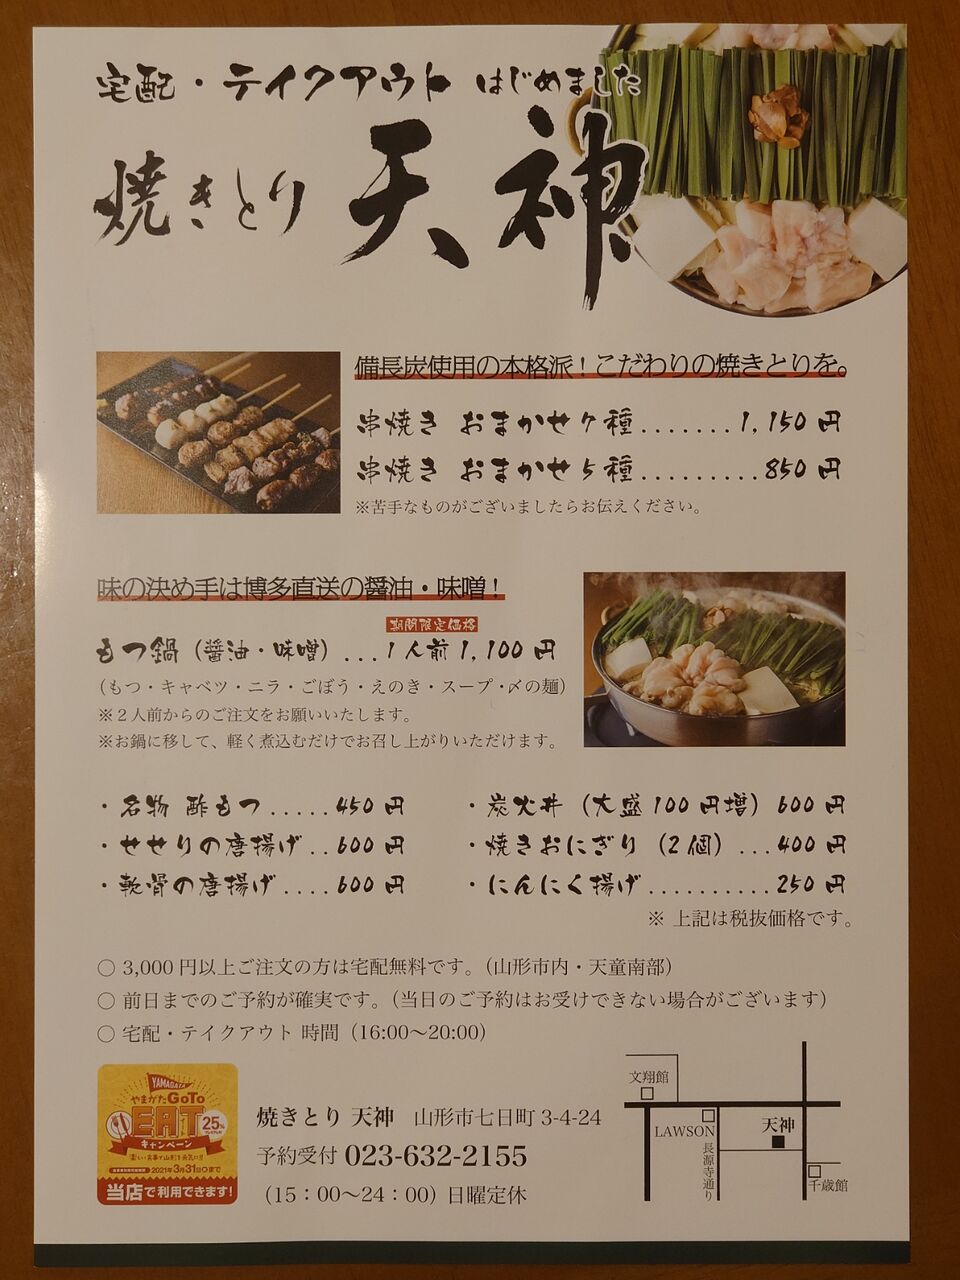 宅配・テイクアウト はじめました
焼きとり 天神
備長炭使用の本格派！こだわりの焼きとりを。
串焼き おまかせ7種.......1,150円
串焼き おまかせ5種.........850円
※苦手なものがございましたらお伝えください。
味の決め手は博多直送の醤油・味噌！
期間限定価格
もつ鍋（醤油・味噌）...1人前1,100円
（もつ・キャベツ・ニラ・ごぼう・えのき・スープ・〆の麺）
※２人前からのご注文をお願いいたします。
※お鍋に移して、軽く煮込むだけでお召し上がりいただけます。
・名物 酢もつ.....450円
・せせりの唐揚げ..600円
・軟骨の唐揚げ....600円
・炭火丼（大盛100円増）600円
・焼きおにぎり（2個）...400円
・にんにく揚げ..........250円
※ 上記は税抜価格です。
○ 3,000円以上ご注文の方は宅配無料です。（山形市内・天童南部）
○ 前日までのご予約が確実です。（当日のご予約はお受けできない場合がございます）
○ 宅配・テイクアウト 時間（16:00～20:00）
YAMAGATA
やまがたGoTo
EAT
25%
キャンペーン
2021年3月31日まで
当店で利用できます！
焼きとり 天神　山形市七日町 3-4-24
予約受付 023-632-2155
（15：00～24：00）日曜定休
文翔館
LAWSON
天神
長源寺通り
千歳館